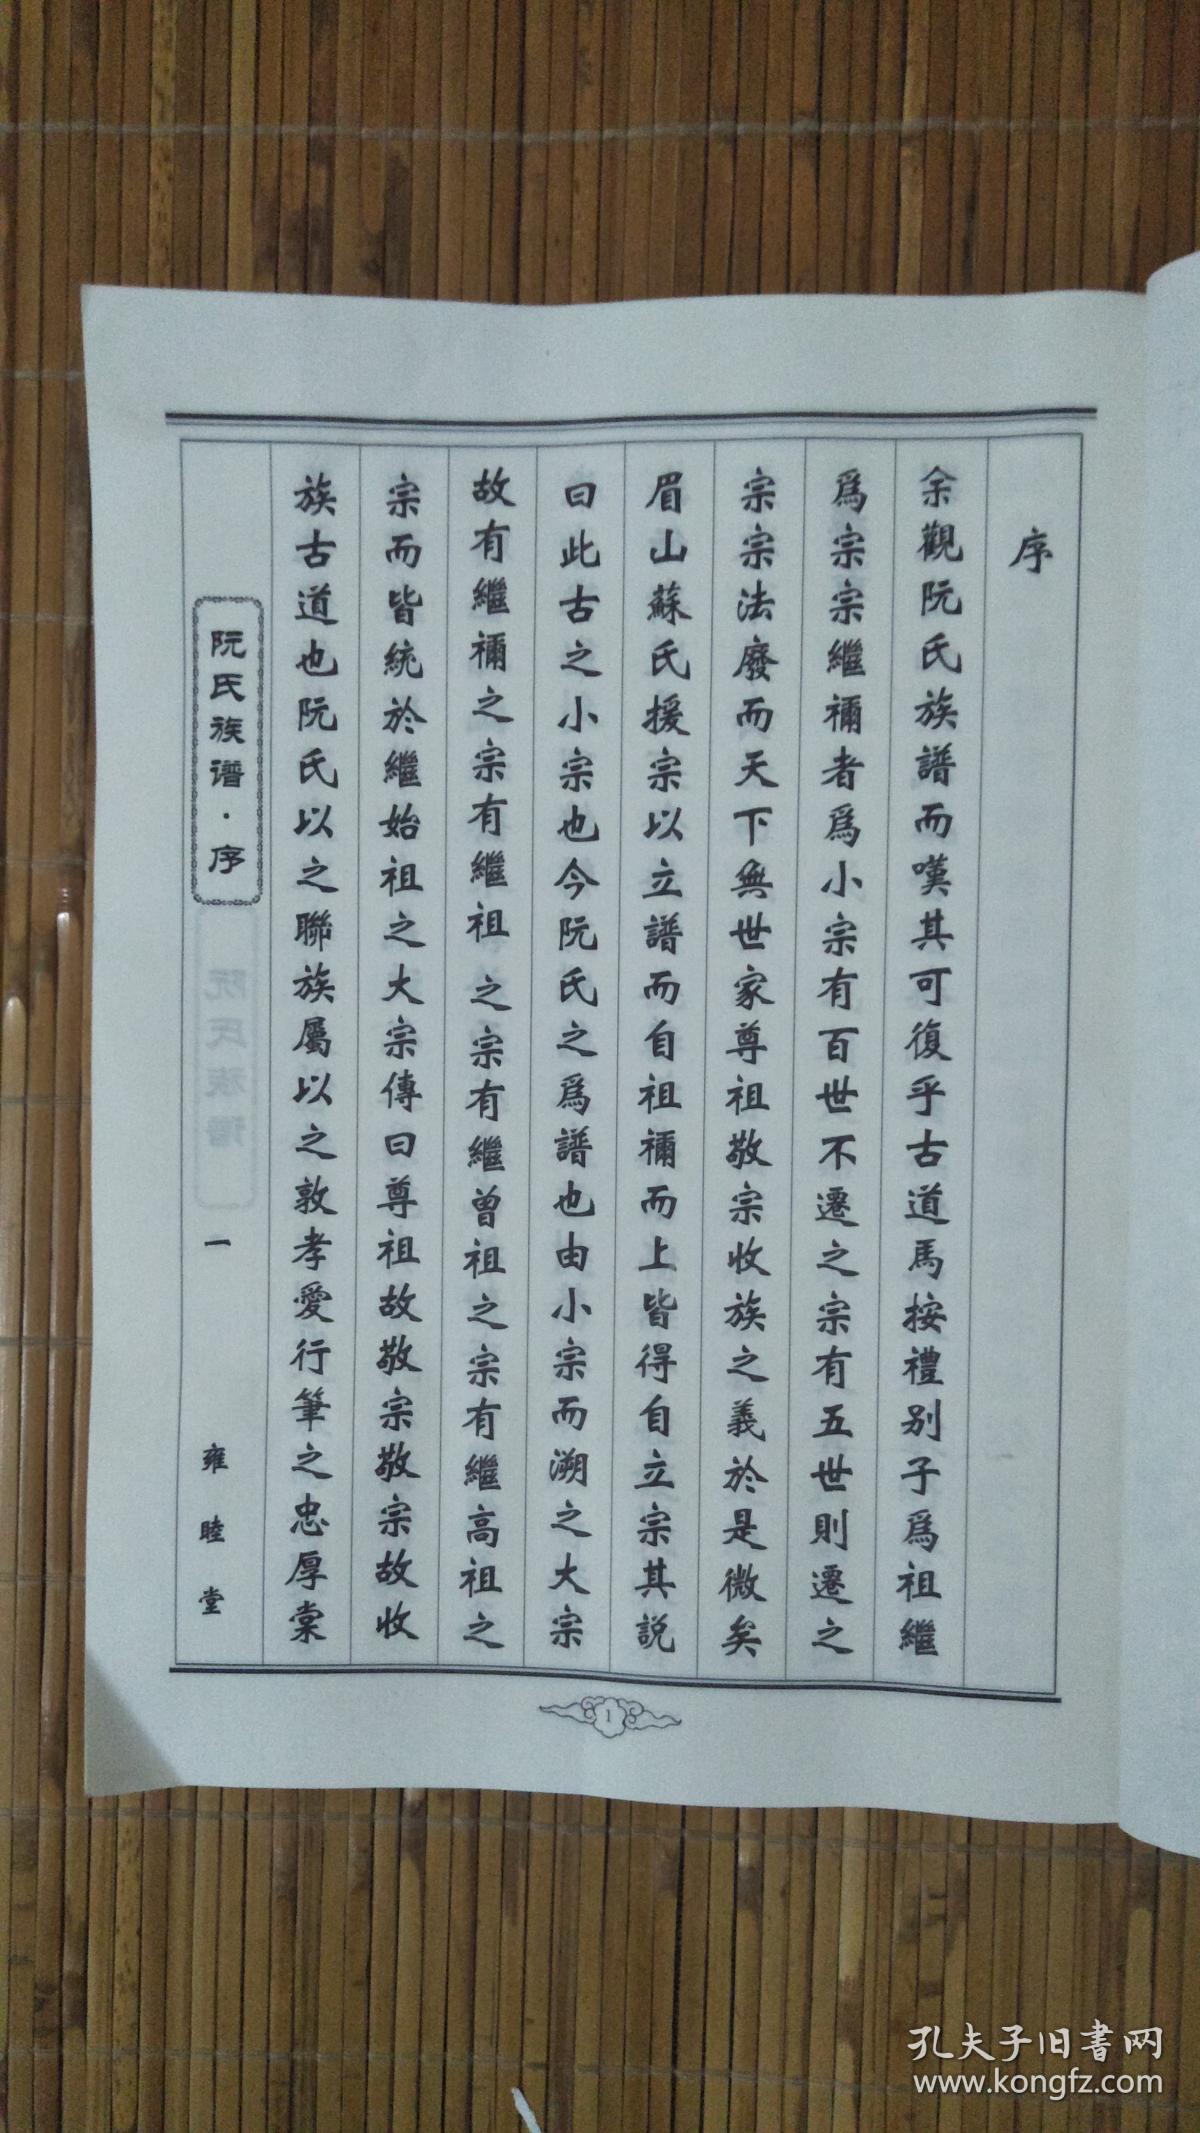 序
余觀阮氏族譜而嘆其可復乎古道馬按禮别子爲祖繼
爲宗宗繼禰者爲小宗有百世不遷之宗有五世則遷之
宗宗法廢而天下無世家尊祖敬宗收族之義於是微矣
眉山蘇氏援宗以立譜而自祖禰而上皆得自立宗其説
曰此古之小宗也今阮氏之爲譜也由小宗而溯之大宗
故有繼禰之宗有繼祖之宗有繼曾祖之宗有繼高祖之
宗而皆統於繼始祖之大宗傳曰尊祖故敬宗敬宗故收
族古道也阮氏以之聯族屬以之敦孝愛行筆之忠厚棠
阮氏族谱·序
一
雍睦堂
1
孔夫子旧书网
www.kongfz.com